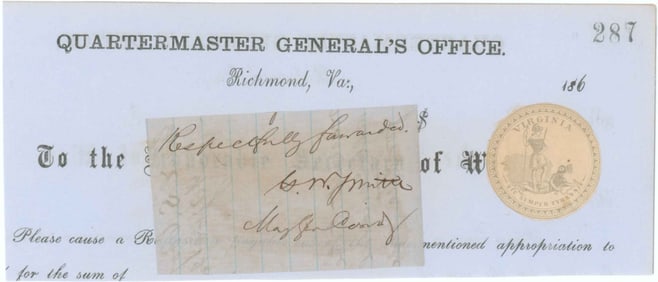 287
QUARTERMASTER GENERAL'S OFFICE.
Richmond, Va:,
186
Respectfully forwarded.
$
To the
of W
G. W. Smith
Maj Gen Comdg
VIRGINIA
SIC SEMPER TYRANNIS
Please cause a Re
mentioned appropriation to
for the sum of